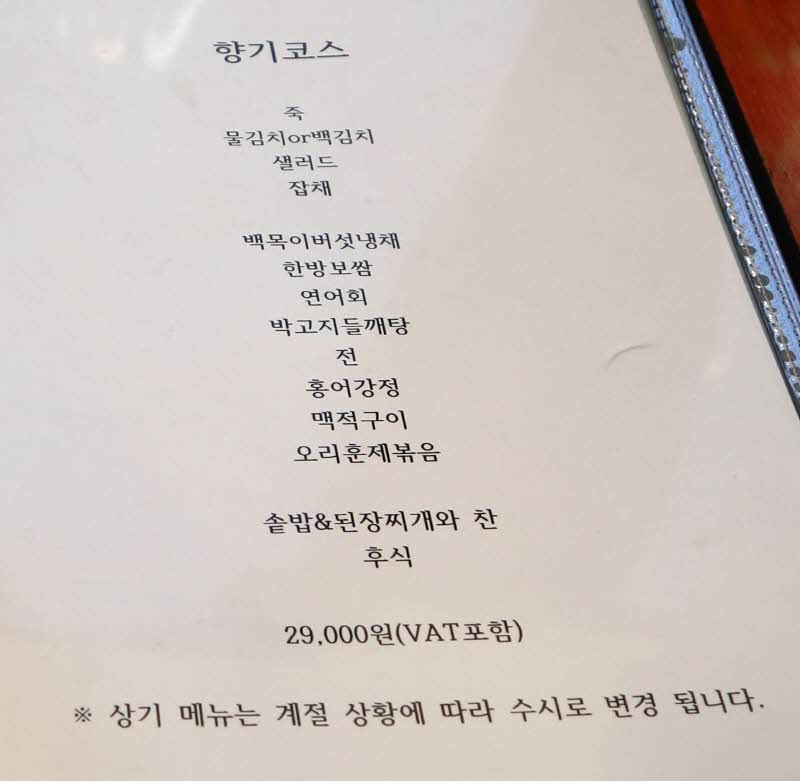 향기코스
죽
물김치or백김치
샐러드
잡채
백목이버섯냉채
한방보쌈
연어회
박고지들깨탕
전
홍어강정
맥적구이
오리훈제볶음
솥밥&된장찌개와 찬
후식
29,000원(VAT포함)
※ 상기 메뉴는 계절 상황에 따라 수시로 변경 됩니다.